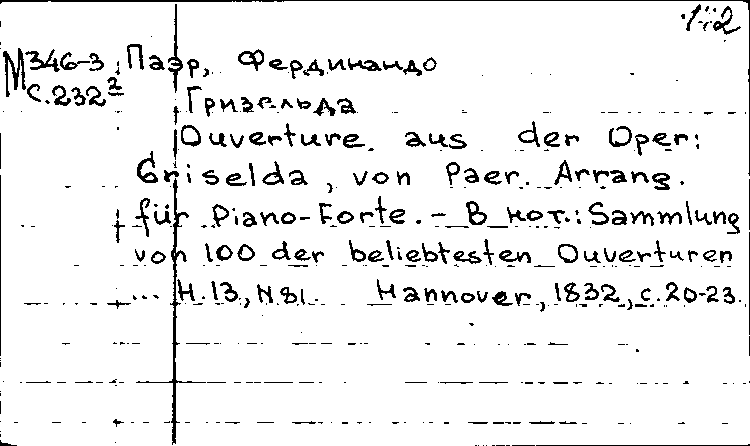 М346-3 Паэр, Фердинандо
с.232² Гризельда
Ouverture aus der Oper:
Griselda, von Paer. Arrang.
für Piano-Forte. - В нот.: Sammlung
von 100 der beliebtesten Ouverturen
... H.13, N 81. Hannover, 1832, с. 20-23.